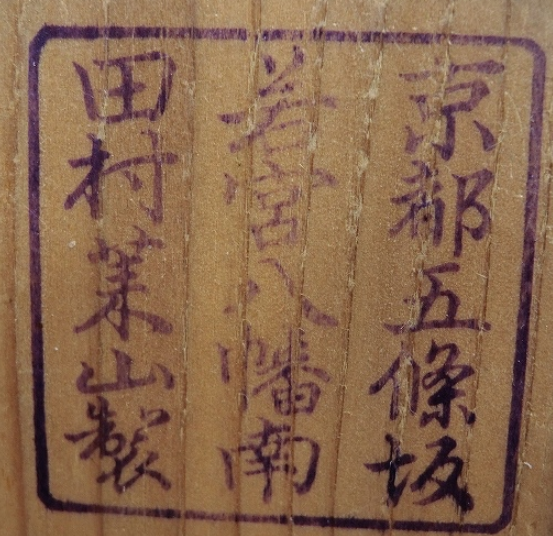 京都五條坂
若宮八幡南
田村莱山製